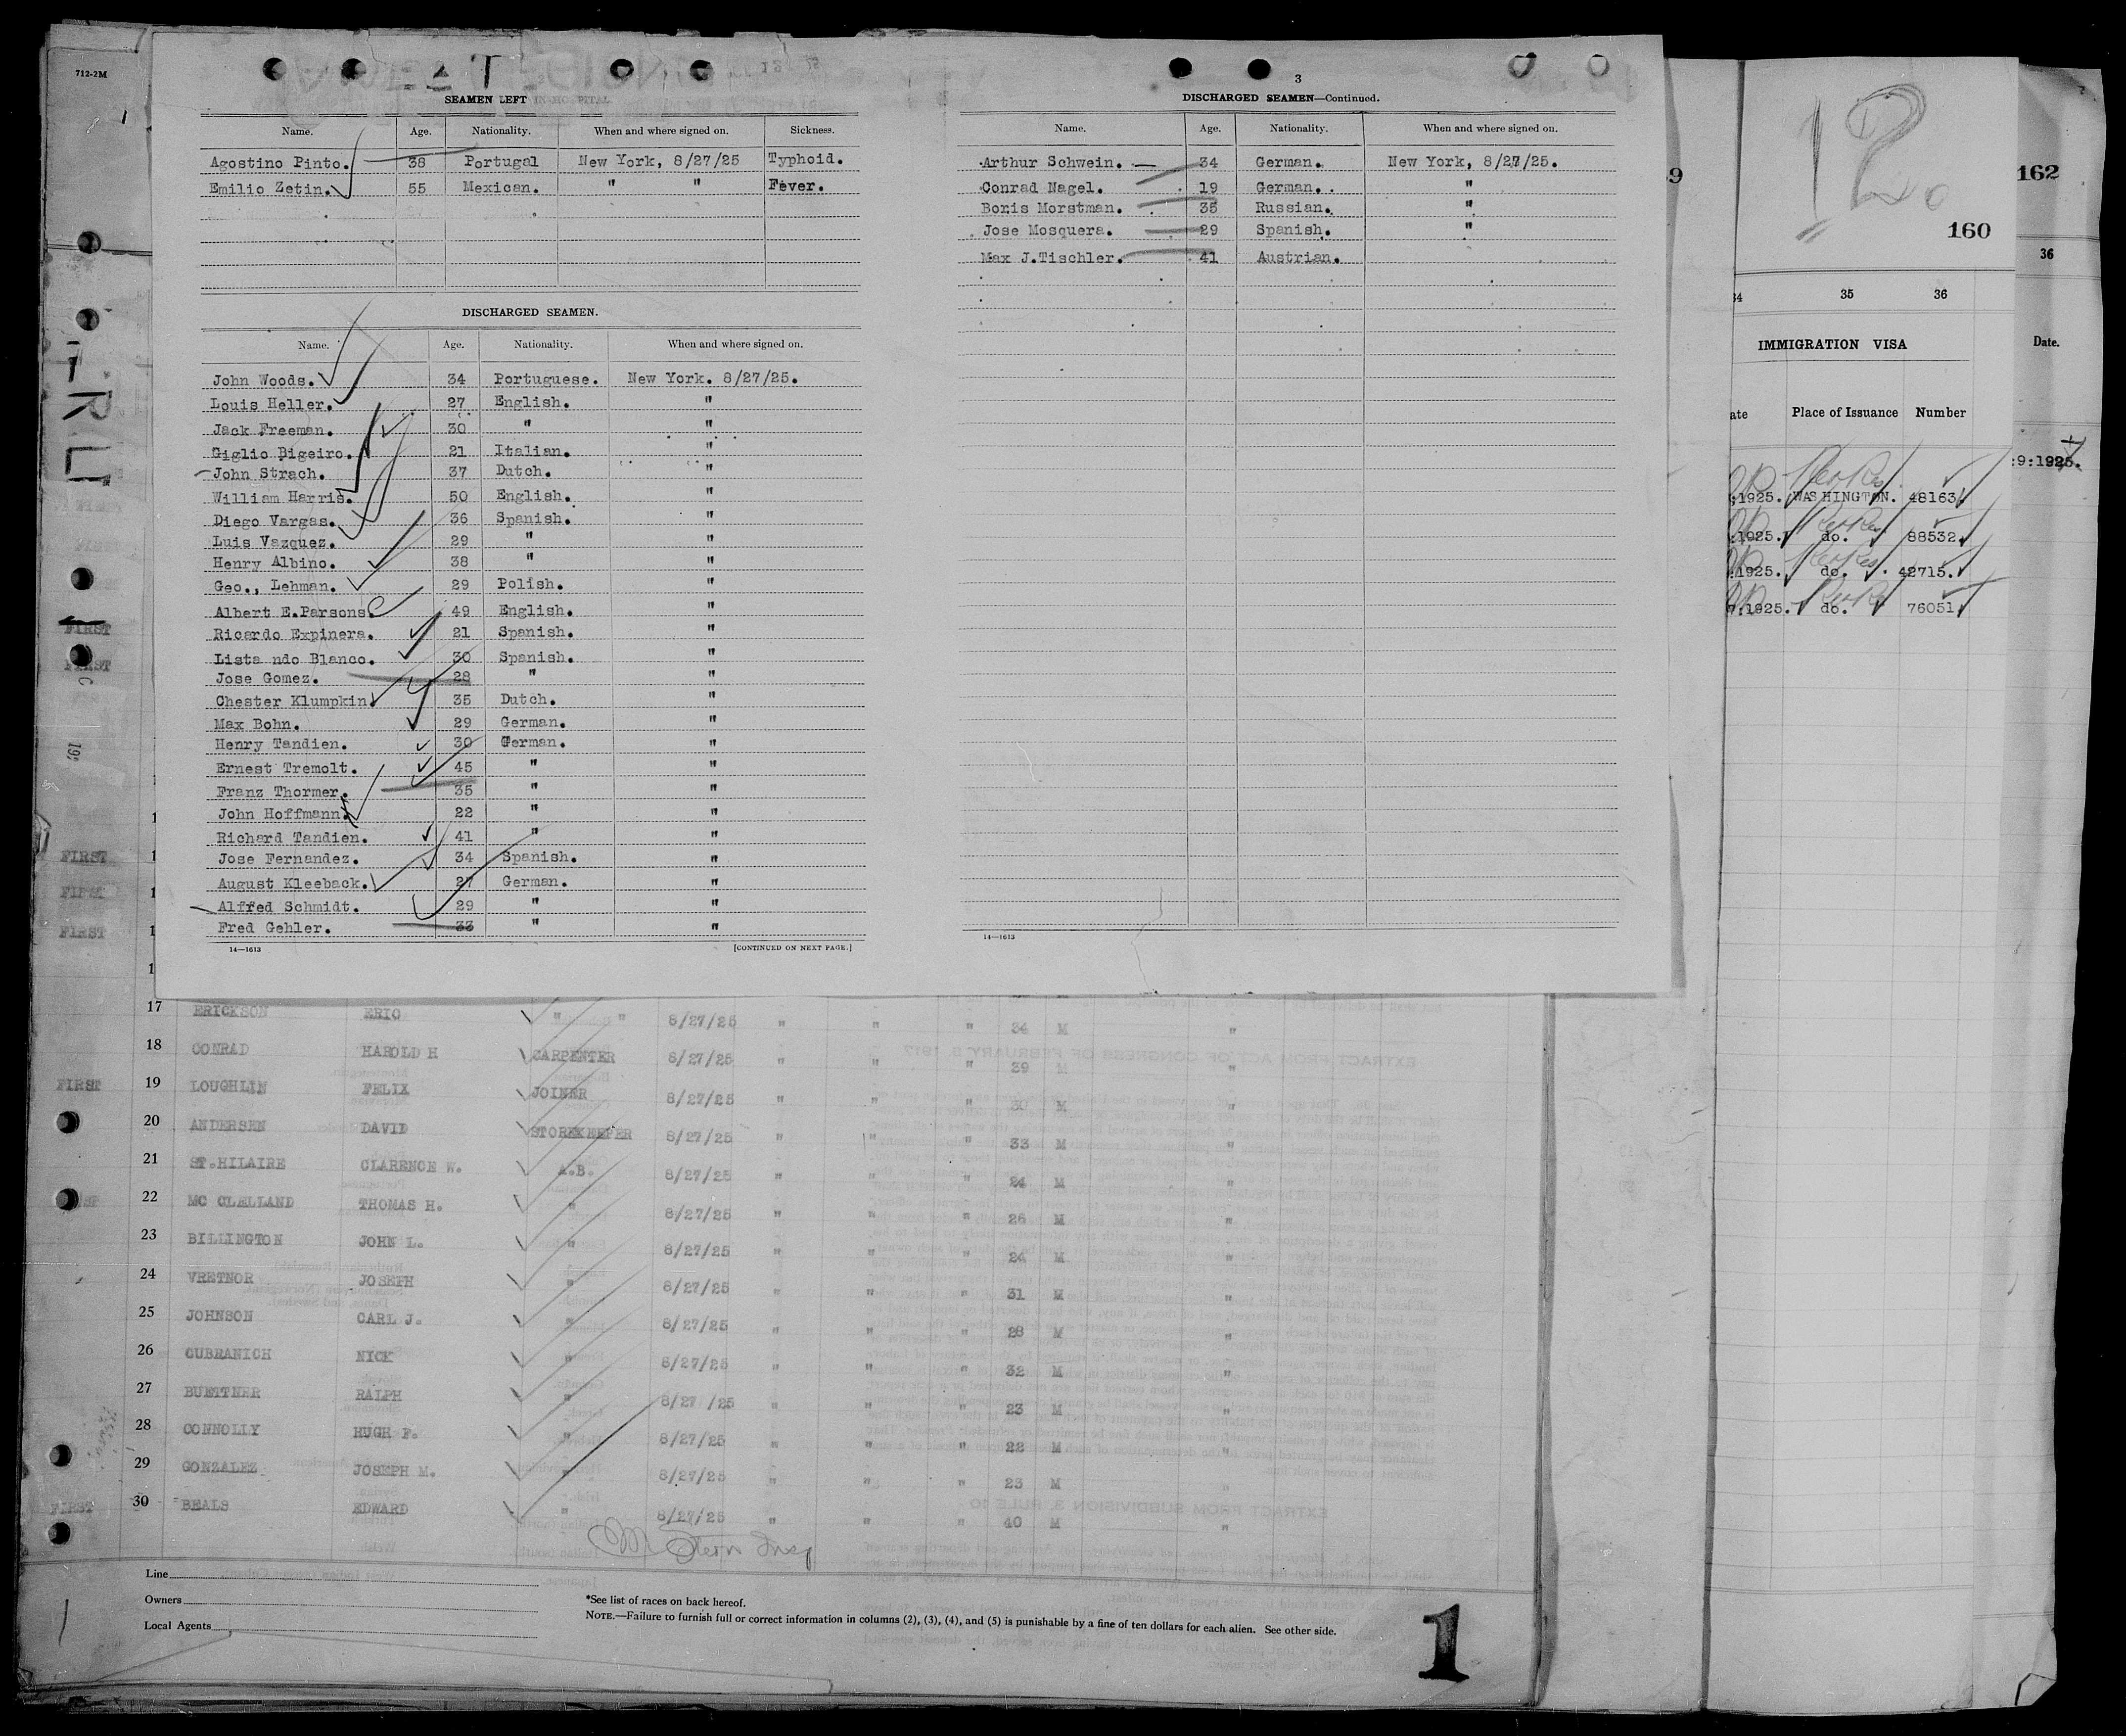 712-2M
SEAMEN LEFT IN HOSPITAL
Name. Age. Nationality. When and where signed on. Sickness.
Agostino Pinto. 38 Portugal New York, 8/27/25 Typhoid.
Emilio Zetin. 55 Mexican. " " Fever.
DISCHARGED SEAMEN.
Name. Age. Nationality. When and where signed on.
John Woods. 34 Portuguese. New York. 8/27/25.
Louis Heller. 27 English. "
Jack Freeman. 30 " "
Giglio Bigeiro. 21 Italian. "
John Strach. 37 Dutch. "
William Harris. 50 English. "
Diego Vargas. 36 Spanish. "
Luis Vazquez. 29 " "
Henry Albino. 38 " "
Geo., Lehman. 29 Polish. "
Albert E.Parsons. 49 English. "
Ricardo Expinera. 21 Spanish. "
Lista ndo Blanco. 30 Spanish. "
Jose Gomez. 28 " "
Chester Klumpkin. 35 Dutch. "
Max Bohn. 29 German. "
Henry Tandien. 30 German. "
Ernest Tremolt. 45 " "
Franz Thormer. 35 " "
John Hoffmann. 22 " "
Richard Tandien. 41 " "
Jose Fernandez. 34 Spanish. "
August Kleeback. 27 German. "
Alffed Schmidt. 29 " "
Fred Gehler. 33 " "
14—1613 [CONTINUED ON NEXT PAGE.]
3
DISCHARGED SEAMEN—Continued.
Name. Age. Nationality. When and where signed on.
Arthur Schwein. 34 German. New York, 8/27/25.
Conrad Nagel. 19 German. "
Boris Morstman. 35 Russian. "
Jose Mosquera. 29 Spanish. "
Max J.Tischler. 41 Austrian.
14—1613
12
160
162
9
34 35 36
36
IMMIGRATION VISA
Date.
ate Place of Issuance Number
:9:1925.
:1925. WASHINGTON. 48163
:1925. do. 88532
:1925. do. 42715.
7:1925. do. 76051
FIRST
FIRST
FIRST
FIRST
FIRST
17 ERICKSON ERIC " " 8/27/25 " " " 34 M "
18 CONRAD HAROLD H CARPENTER 8/27/25 " " " 39 M "
FIRST 19 LOUGHLIN FELIX JOINER 8/27/25 " " " 30 M "
20 ANDERSEN DAVID STOREKEEPER 8/27/25 " " " 33 M "
21 ST.HILAIRE CLARENCE W. A.B. 8/27/25 " " " 24 M "
22 MC CLELLAND THOMAS H. " 8/27/25 " " " 26 M "
23 BILLINGTON JOHN L. " 8/27/25 " " " 24 M "
24 VRETNOR JOSEPH " 8/27/25 " " " 31 M "
25 JOHNSON CARL J. " 8/27/25 " " " 28 M "
26 CUBRANICH NICK " 8/27/25 " " " 32 M "
27 BUETTNER RALPH " 8/27 /25 " " " 23 M "
28 CONNOLLY HUGH F. " 8/27/25 " " " 22 M "
29 GONZALEZ JOSEPH M. " 8/27/25 " " " 23 M "
FIRST 30 BEALS EDWARD " 8/27/25 " " " 40 M "
M Stern Insp
Line
Owners
Local Agents
*See list of races on back hereof.
NOTE.—Failure to furnish full or correct information in columns (2), (3), (4), and (5) is punishable by a fine of ten dollars for each alien. See other side.
1